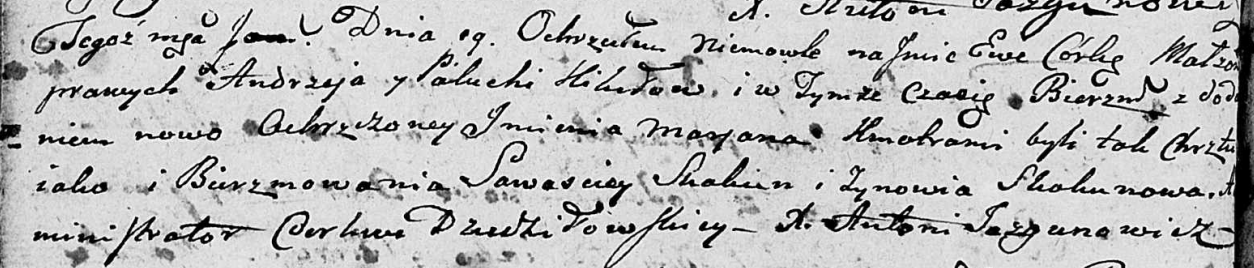 X. Antoni
Tegoż mca Dnia 29. Ochrzciłem Niemowle na Jmie Ewe Córkę Małżon
prawych Andrzeja y Paluchi Hikiłow. i w Tymże Czasie Bierzm z doda
niem nowo Ochrzczoney Jmienia Maryana Kmotrami byli tak Chrztu
iako i Bierzmowania Sawasciey Skakun i Zynowia Skakunowa. A
ministrator Cerkwi Dziedziłowskiey – X. Antoni Jazgunowicz